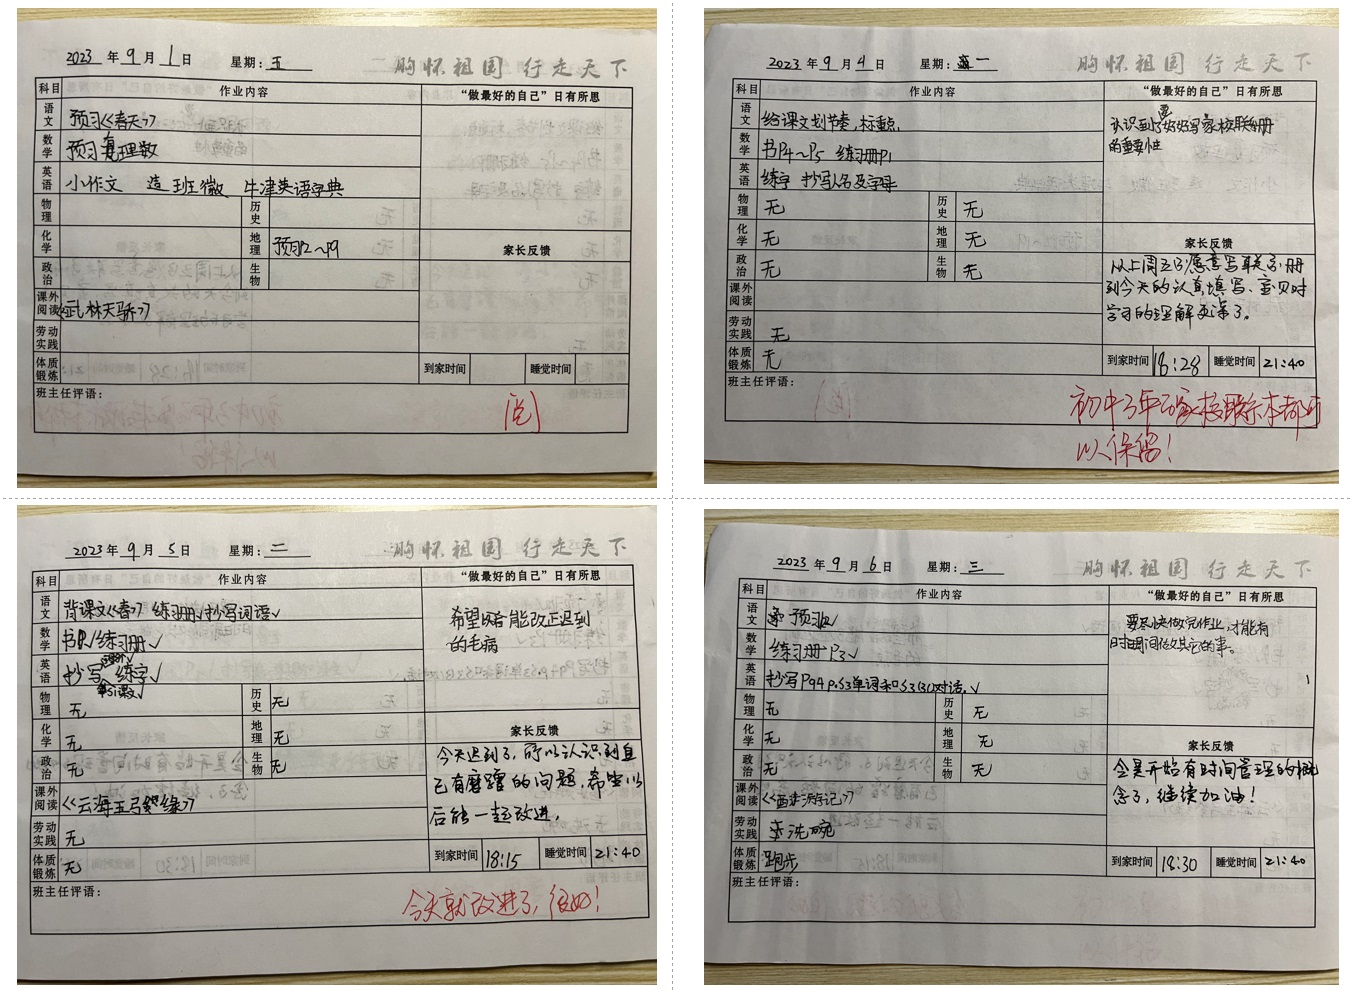 2023 年 9 月 1 日 星期: 五 胸怀祖国 行走天下
科目 作业内容 “做最好的自己”日有所思
语文 预习《春天》
数学 预习有理数
英语 小作文 造班徽 牛津英语字典
物理 历史
化学 地理 预习2~P9 家长反馈
政治 生物
课外阅读 《武林天骄》
劳动实践
体质锻炼 到家时间 睡觉时间
班主任评语:
2023 年 9 月 4 日 星期: 一 胸怀祖国 行走天下
科目 作业内容 “做最好的自己”日有所思
语文 给课文划节奏,标重点,
认识到了要好好写家校联系册
的重要性
数学 书P4~P5 练习册P1
英语 练字 抄写人名及字母
物理 无 历史 无
化学 无 地理 无 家长反馈
政治 无 生物 无
从上周五不愿意写联系册
到今天的认真填写、宝贝对
学习的理解更深了。
课外阅读
劳动实践 无
体质锻炼 无 到家时间 18:28 睡觉时间 21:40
班主任评语:
初中3年的家校联系本都可
以保留!
2023 年 9 月 5 日 星期: 二 胸怀祖国 行走天下
科目 作业内容 “做最好的自己”日有所思
语文 背课文《春》 练习册√抄写词语√
希望 能改正迟到
的毛病
数学 练习册√
英语 抄写 练字√
物理 无 历史 无
化学 无 地理 无 家长反馈
政治 无 生物 无
今天迟到了,所以认识到自
己有磨蹭的问题,希望以
后能一起改进,
课外阅读 《云海玉弓缘》
劳动实践 无
体质锻炼 无 到家时间 18:15 睡觉时间 21:40
班主任评语:
今天就改进了,很好!
2023 年 9 月 6 日 星期: 三 胸怀祖国 行走天下
科目 作业内容 “做最好的自己”日有所思
语文 预习 √
要尽快做完作业,才能有
时间做其它的事。
数学 练习册P3√
英语 抄写P94 P.S3单词和S3(3)对话,√
物理 无 历史 无
化学 无 地理 无 家长反馈
政治 无 生物 无
会是开始有时间管理的概
念了,继续加油!
课外阅读 《西游记》
劳动实践 洗碗
体质锻炼 跑步 到家时间 18:30 睡觉时间 21:40
班主任评语: